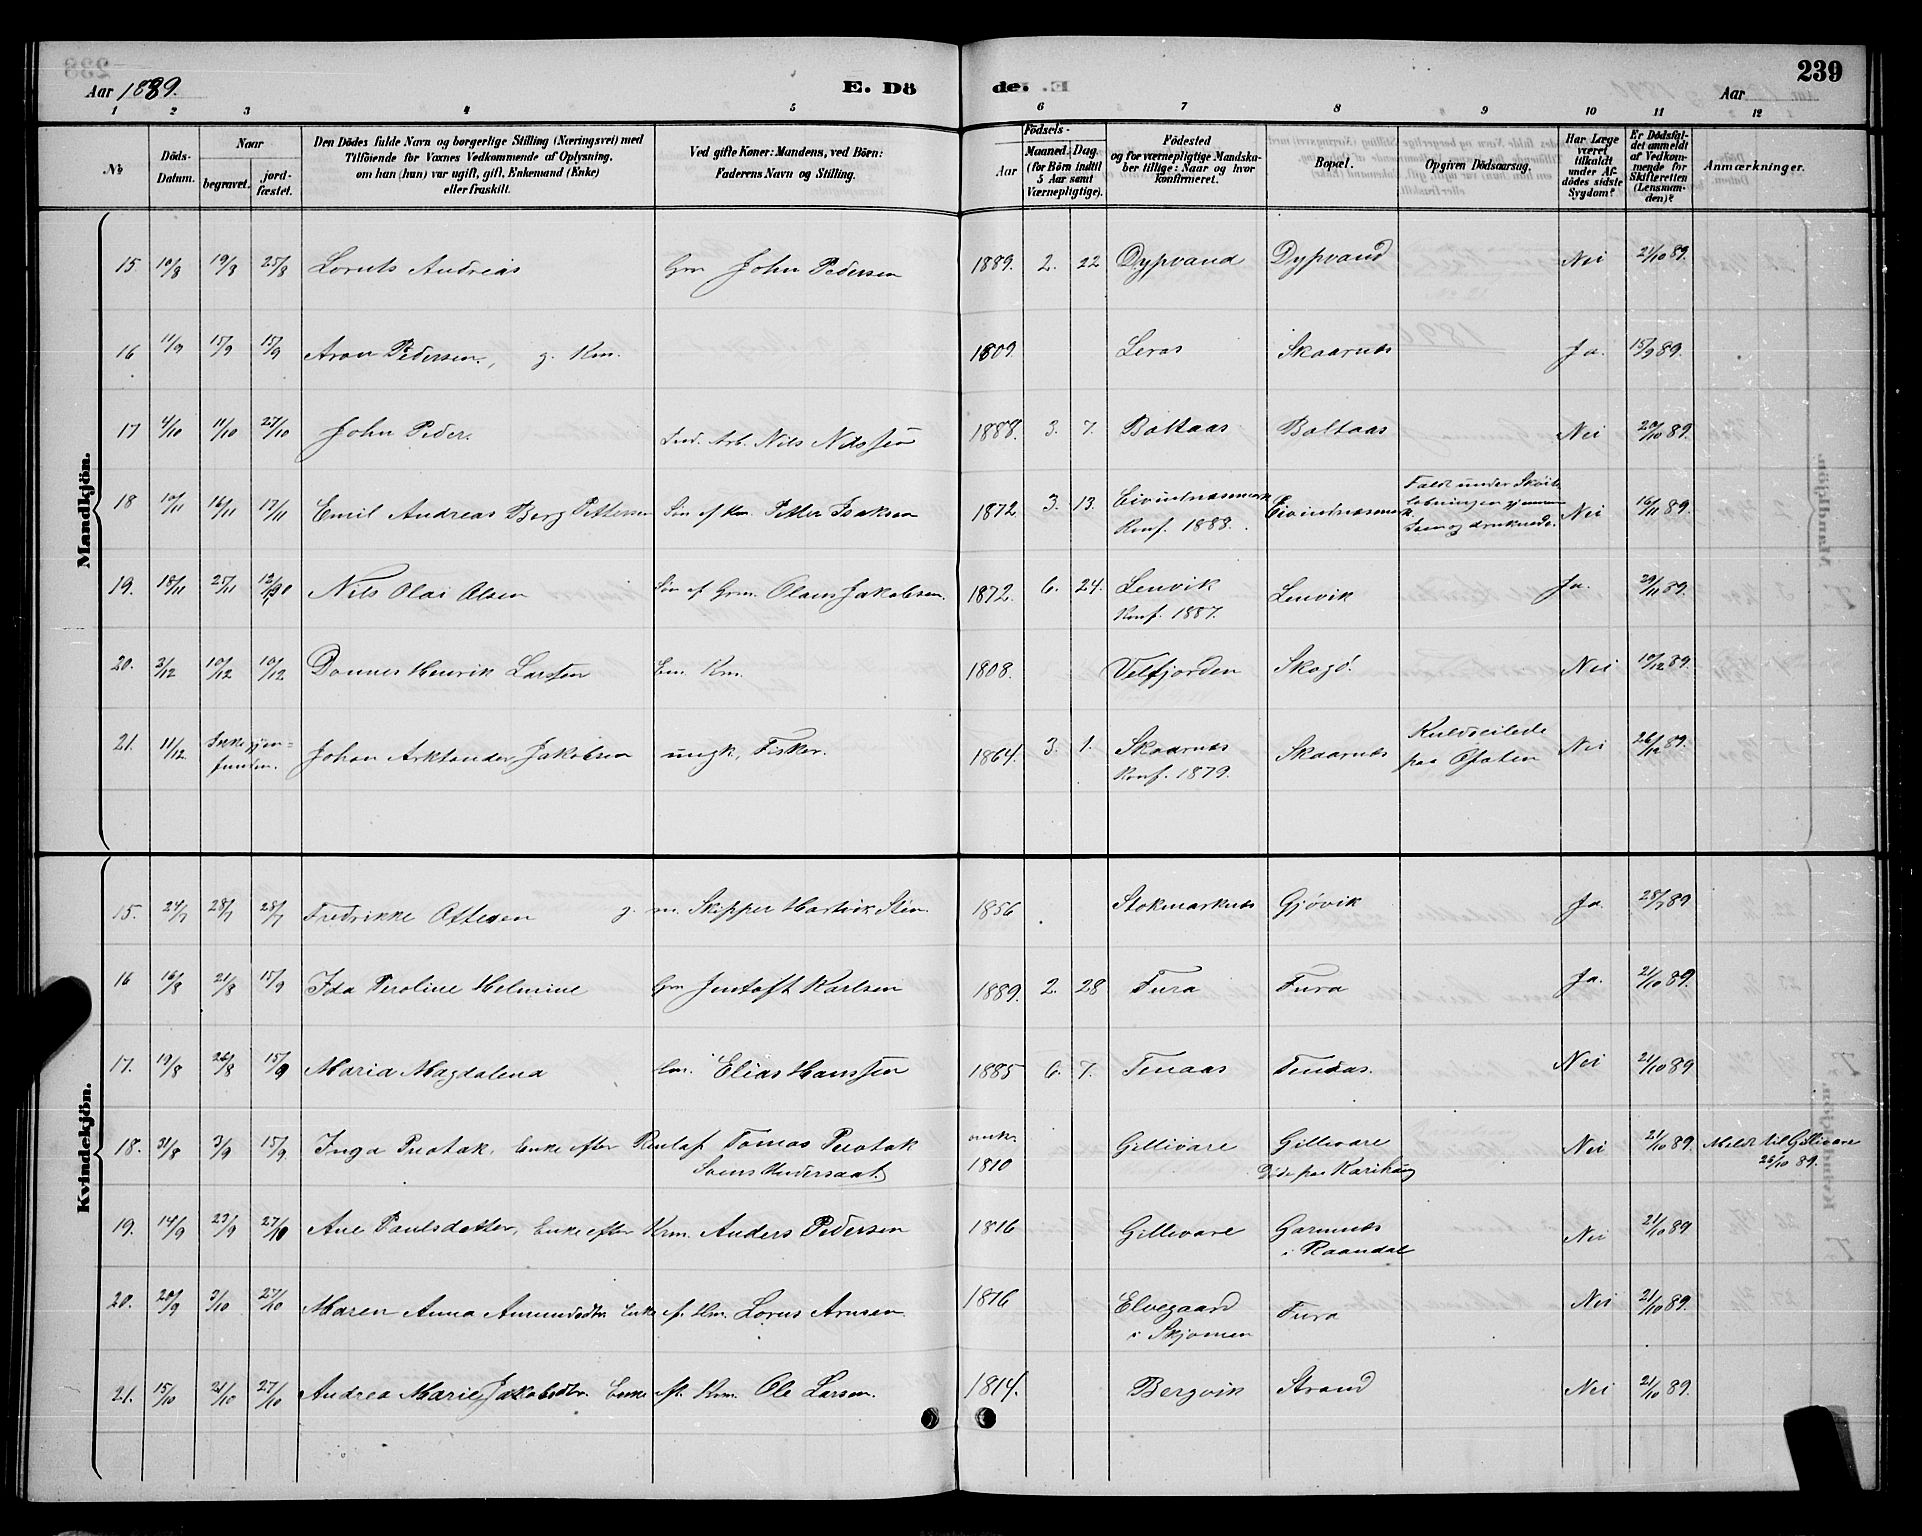 239
Aar 1889.
E. Döde.
Aar
1 2 3 4 5 6 7 8 9 10 11 12
No
Döds-Datum.
Naar
begravet.
jord-fæstet.
Den Dödes fulde Navn og borgerlige Stilling (Næringsvei) med
Tilföiende for Voxnes Vedkommende af Oplysning,
om han (hun) var ugift, gift, Enkemand (Enke)
eller fraskilt.
Ved gifte Koner: Mandens, ved Börn:
Faderens Navn og Stilling.
Födsels-
Aar
Maaned. Dag.
(for Börn indtil
5 Aar samt
Værnepligtige).
Födested
og for værnepligtige Mandska-
ber tillige: Naar og hvor
konfirmeret.
Bopæl.
Opgiven Dödsaarsag.
Har Læge
været
tilkaldt
under Af-
dödes sidste
Sygdom?
Er Dödsfal-
det anmeldt
af Vedkom-
mende for
Skifteretten
(Lensman-
den)?
Anmærkninger.
Mandkjön.
15 10/8 19/8 25/8 Loruts Andreas Grm John Pedersen 1889. 2. 22 Dypvand Dypvand Nei 21/10 89.
16 11/9 15/9 15/9 Aron Pedersen, g. Km. 1809. Leras Skaarnes Ja. 15/9 89.
17 4/10 11/10 27/10 John Peder. Ind. Arb. Nils Nilssen 1888. 3. 7. Boltaas Boltaas Nei 20/10 89.
18 10/11 16/11 17/11 Emil Andreas Berg Pettersen Sön af Km. Petter Isaksen 1872 3. 13. Eivindnæsmark Eivindnæsmark Faldt under Skøite-
Konf. 1888. løbningen gjennem
Isen og druknede. Nei 16/11 89.
19. 18/11 25/11 Nils Olai Olsen Sön af Grm. Olaus Jakobsen. 1872. 6. 24. Lenvik Lenvik Ja. 29/11 89.
Konf. 1887.
20. 3/12 10/12 10/12 Donnes Henrik Larssen Em. Km. 1808. Velfjorden Skogö. Nei 10/12 89.
21. 11/12 Ikke gjen-
funden. Johan Arktander Jakobsen ungk, Fisker. 1864. 3. 1. Skaarnes Skaarnes Kuldseilede
paa Ofoten Nei 26/12 89.
Konf. 1879.
Kvindekjön.
15. 24/7 28/7 28/7 Fredrikke Ottesen g. m. Skipper Hartvik Steen 1856 Stokmarknes Gjövik Ja. 28/7 89
16 16/8 21/8 15/9 Ida Peroline Helmine Grm Jentoft Karlsen 1889. 2. 28 Fura Fura Ja. 21/10 89.
17. 19/8 26/8 15/9 Maria Magdalena Elias Hanssen 1885 6. 7. Tenaas Tenaas. Nei 21/10 89
18. 31/8 3/9 15/9. Inga Puotak, Enke efter Renlap Tomas Puotak omkr. Gillivare Gillivare Nei 21/10 89. Meldt til Gillivare
1810 Döde paa Karihaug 26/10 89.
19. 14/9 23/9 27/10 Ane Paulsdatter, Enke efter Krm. Anders Pedersen 1816 Gillivare Garnnes Nei 21/10 89
i Raandal
20. 20/9 3/10 27/10 Maren Anna Amundsdtr Enke ef. Km. Lorns Arnsen. 1816 Elvegaard Fura Nei 21/10 89.
i Skjomen
21. 15/10 21/10 27/10 Andrea Marie Jakobsdtr. Enke eft. Krm. Ole Larsen. 1814. Bergvik Strand Nei 21/10 89.